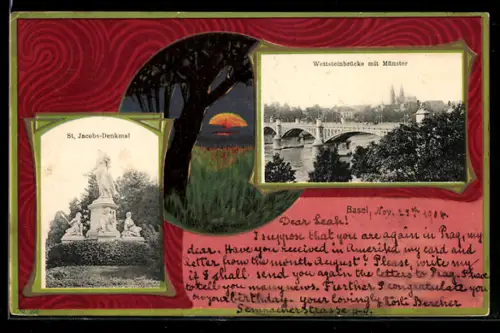 Wettsteinbrücke mit Münster
St. Jacobs-Denkmal
Basel, Nov. 23th 1904.
Dear Leah!
I suppose that you are again in Prag, my
dear. Have you received in Amerika my card and
letter from the month August? Please, write my
it I shall send you again the letters to Prag. I have
to tell you many news. Further I congratulate you
on your birthday. your lovingly Rösli Bercher
Sempacherstrasse